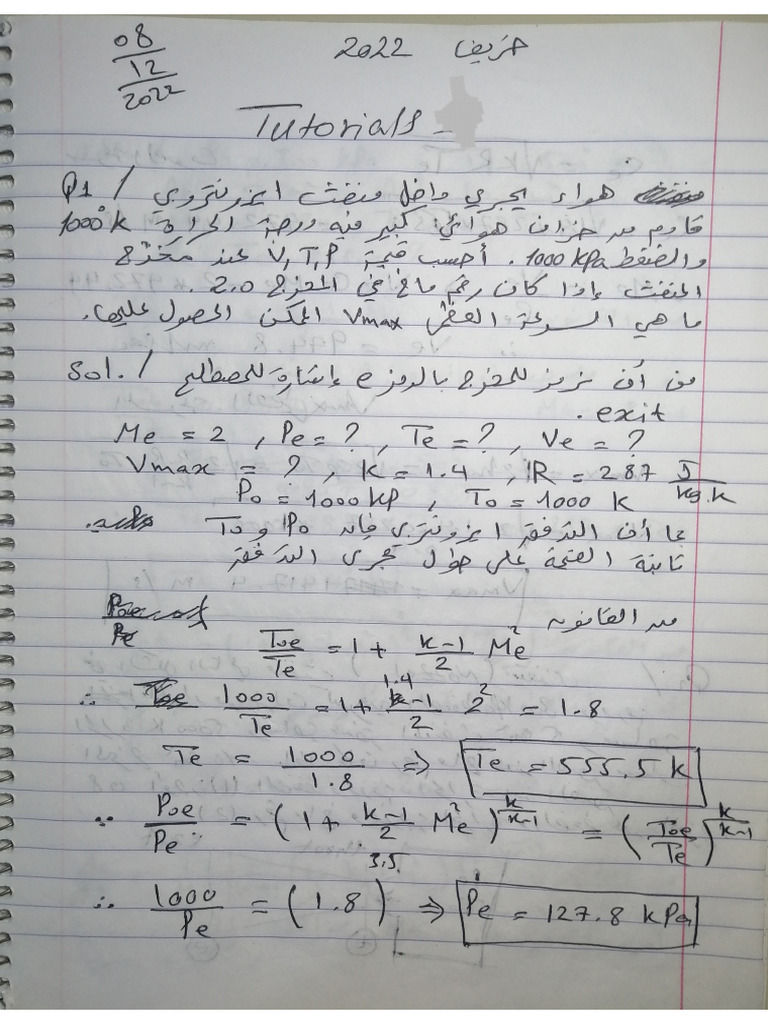 08
12
2022
خريف 2022
Tutorials -
Q1/ هواء يجري داخل منفث ايزونتروبي
قادم من خزان هوائي كبير فيه درجة الحرارة 1000°k
والضغط 1000 kPa. أحسب قيمة V,T,P عند مخرج
المنفث إذا كان رقم ماخ في المخرج 2.0.
ما هي السرعة العظمى Vmax الممكن الحصول عليها.
Sol./ من أن نرمز للمخرج بالرمز e إشارة للمصطلح
exit.
Me = 2 , Pe = ? , Te = ? , Ve = ?
Vmax = ? , K = 1.4 , R = 287 J/kg.k
Po = 1000 kP , To = 1000 k
بما أن التدفق ايزونتربي فإنه Po و To
ثابتة القيمة على طول مجرى التدفق
من القانون
Toe/Te = 1 + k-1/2 Me²
∴ 1000/Te = 1 + 1.4-1/2 2² = 1.8
Te = 1000/1.8 ⇒ Te = 555.5 k
∵ Poe/Pe = (1 + k-1/2 Me²)^k/k-1 = (Toe/Te)^k/k-1
∴ 1000/Pe = (1.8)^3.5 ⇒ Pe = 127.8 kPa